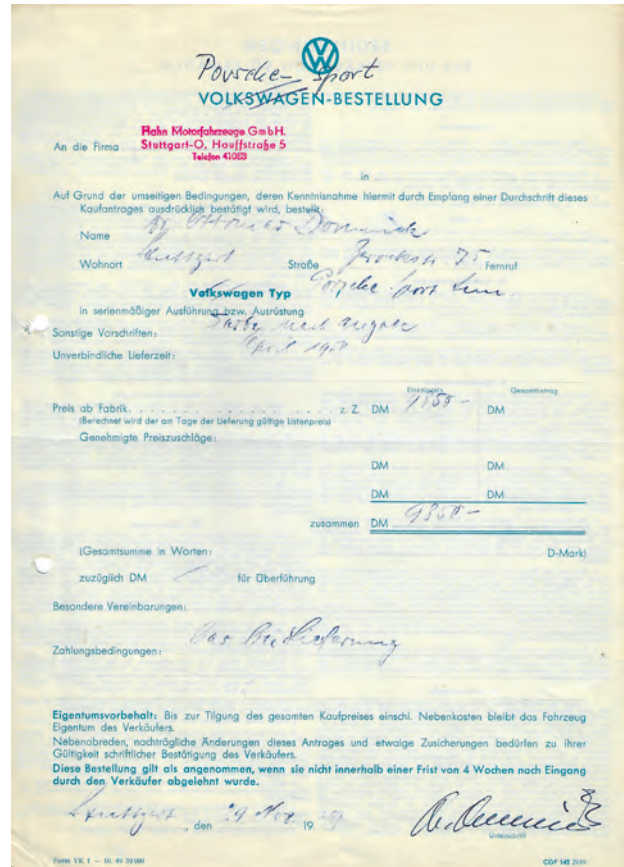 Porsche-Sport
VOLKSWAGEN-BESTELLUNG
An die Firma
Hahn Motorfahrzeuge GmbH.
Stuttgart-O, Hauffstraße 5
Telefon 41083
in
Auf Grund der umseitigen Bedingungen, deren Kenntnisnahme hiermit durch Empfang einer Durchschrift dieses
Kaufantrages ausdrücklich bestätigt wird, bestellt:
Name Dr. Ottomar Domnick
Wohnort Stuttgart Straße 75 Fernruf
Volkswagen Typ Porsche Sport Lim.
in serienmäßiger Ausführung bzw. Ausrüstung
Sonstige Vorschriften: Farbe nach Angabe
Unverbindliche Lieferzeit: April 1950
Einzelpreis Gesamtbetrag
Preis ab Fabrik. . . . . . . . . . . . . . . . . . z. Z. DM DM
(Berechnet wird der am Tage der Lieferung gültige Listenpreis)
Genehmigte Preiszuschläge:
DM DM
DM DM
zusammen DM 9850-
(Gesamtsumme in Worten: D-Mark)
zuzüglich DM für Überführung
Besondere Vereinbarungen:
Zahlungsbedingungen: Bar bei Lieferung
Eigentumsvorbehalt: Bis zur Tilgung des gesamten Kaufpreises einschl. Nebenkosten bleibt das Fahrzeug
Eigentum des Verkäufers.
Nebenabreden, nachträgliche Änderungen dieses Antrages und etwaige Zusicherungen bedürfen zu ihrer
Gültigkeit schriftlicher Bestätigung des Verkäufers.
Diese Bestellung gilt als angenommen, wenn sie nicht innerhalb einer Frist von 4 Wochen nach Eingang
durch den Verkäufer abgelehnt wurde.
Stuttgart, den 29 Nov. 1949
Unterschrift
Form VK 1 – 10. 49 20000